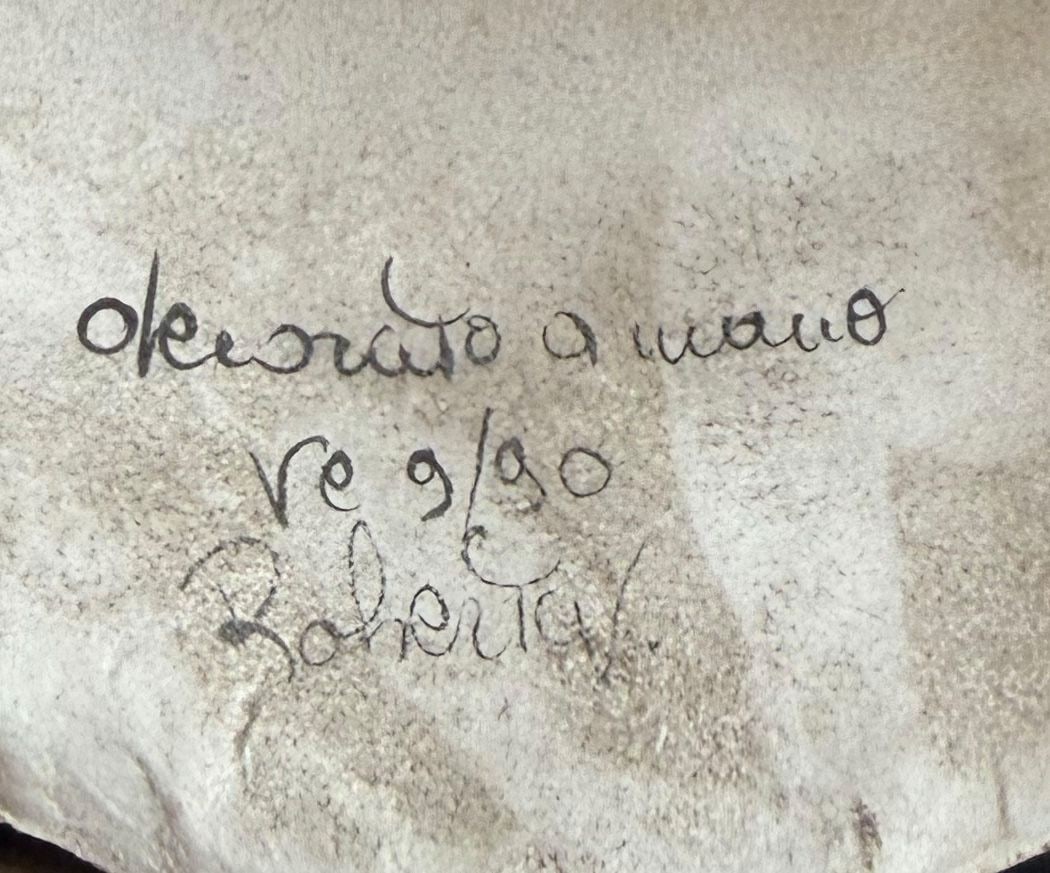 decorato a mano
Ve 9/90
Roberta V.